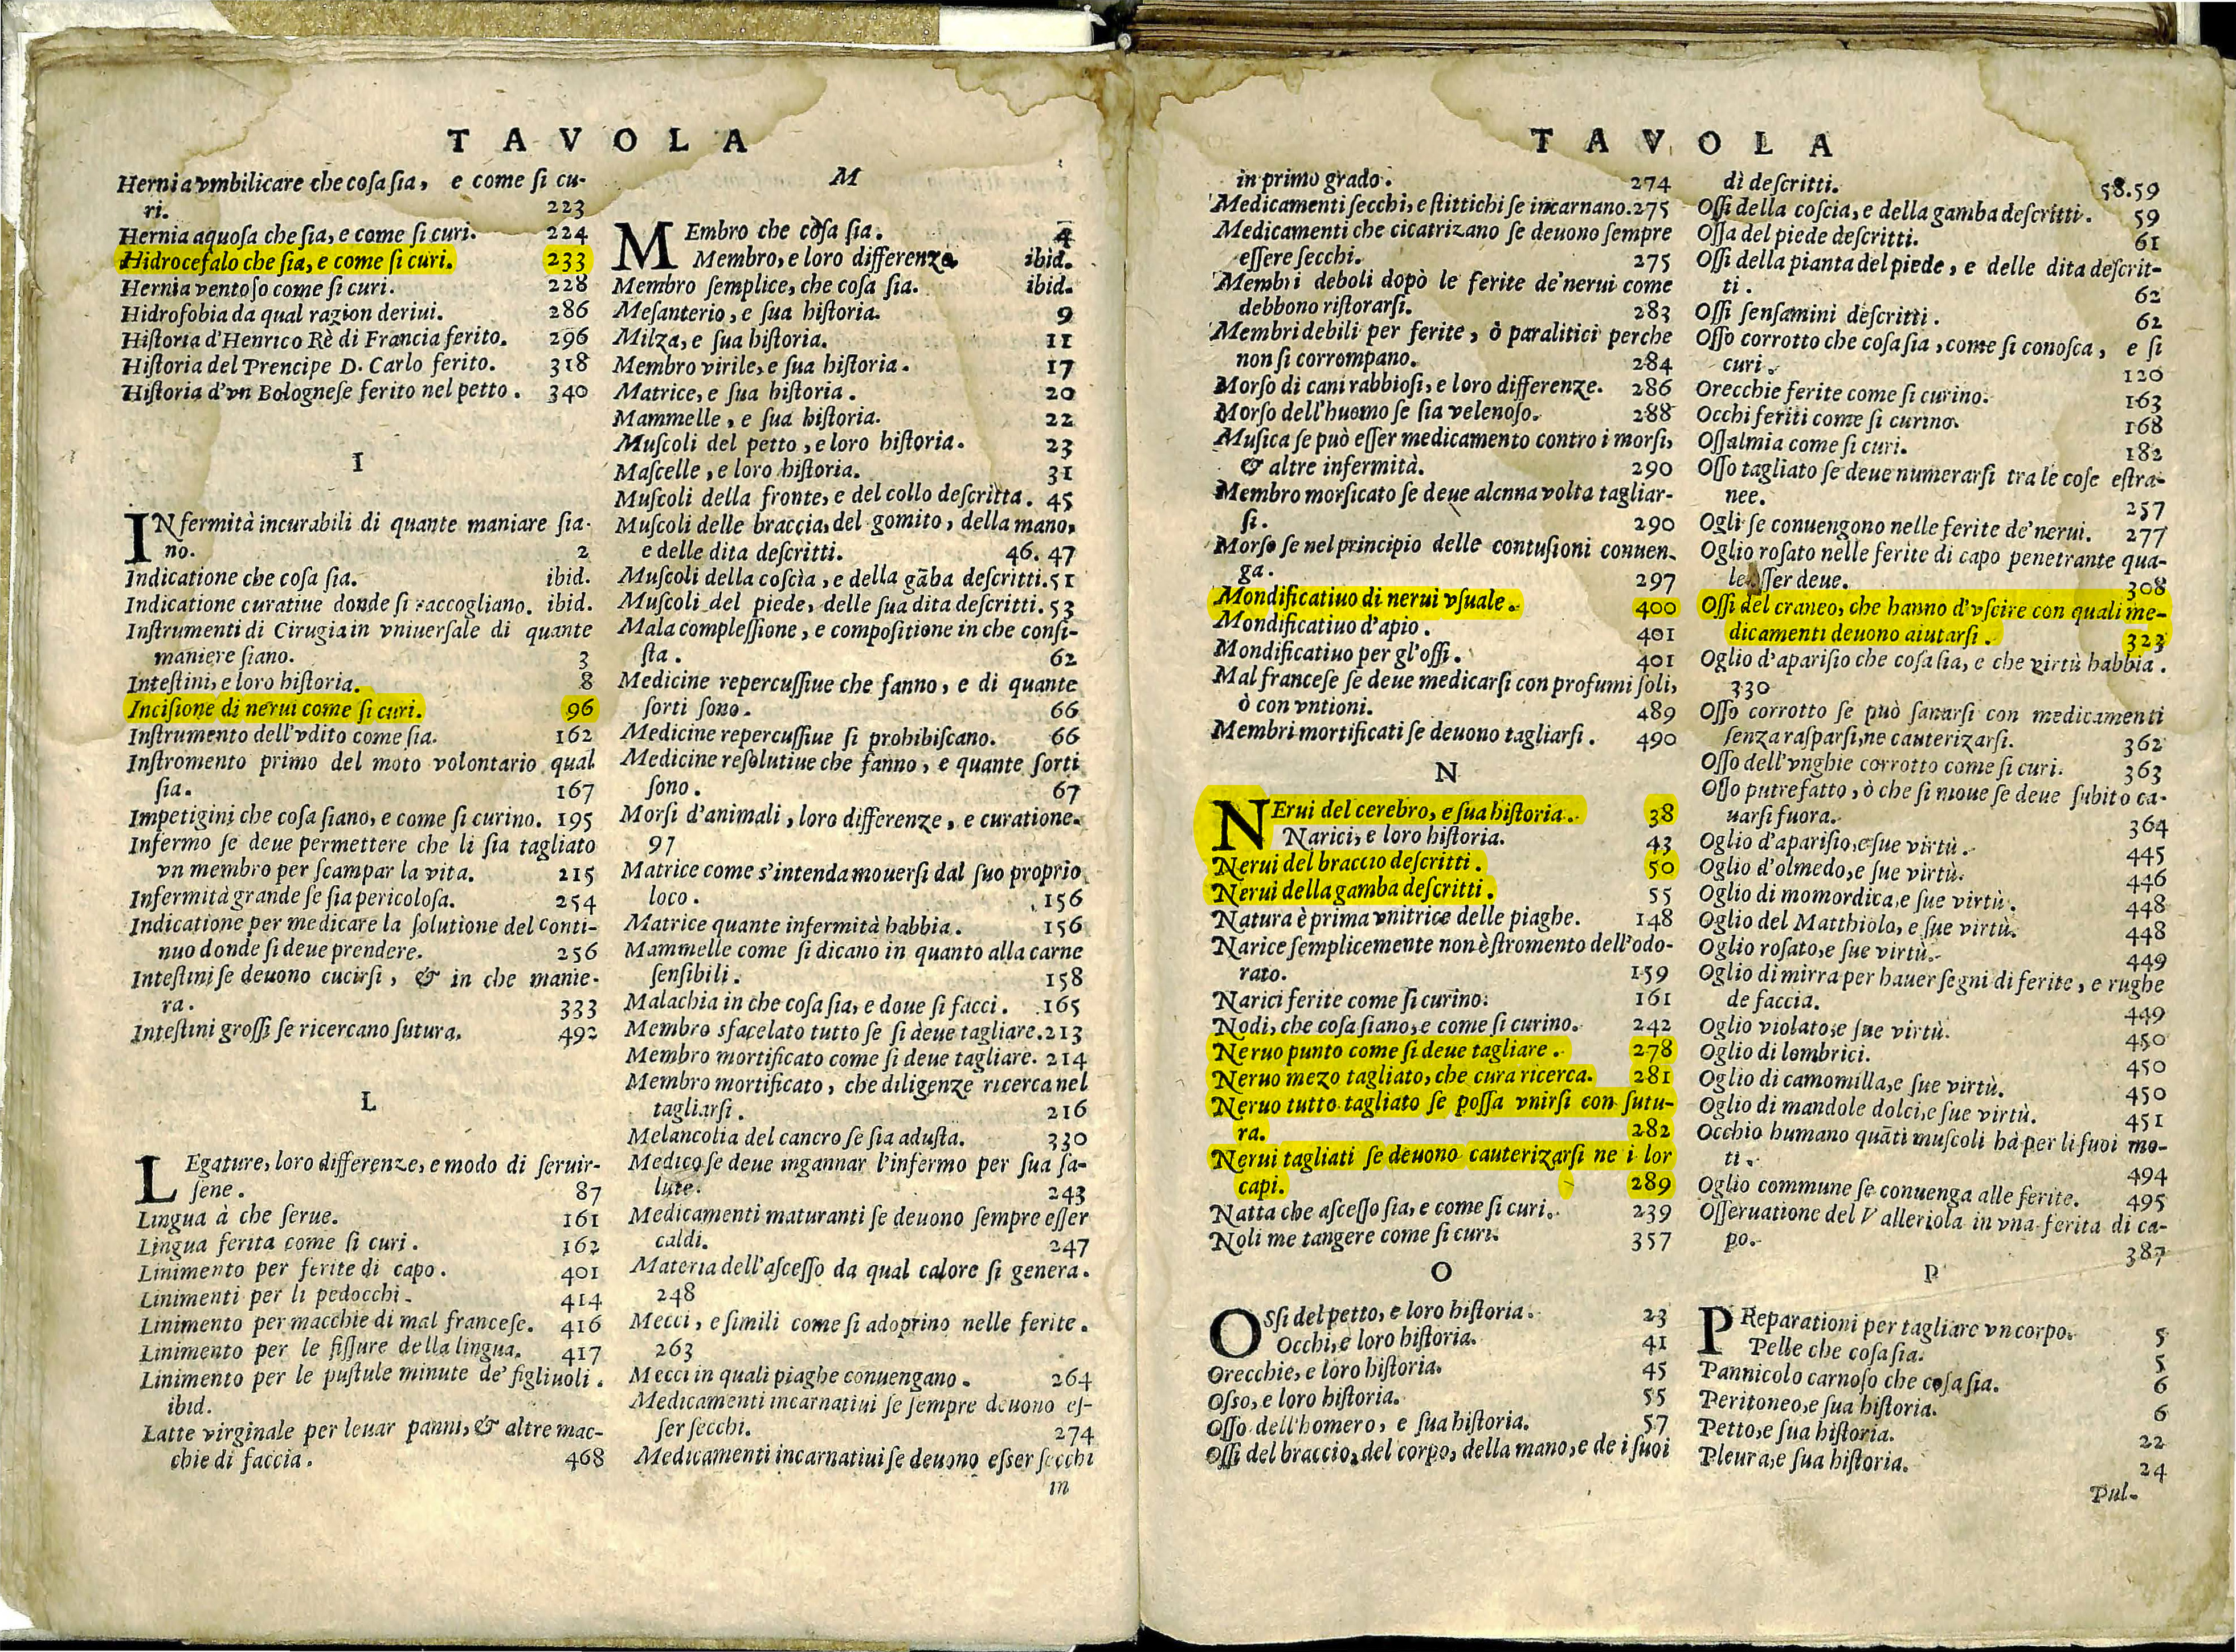 TAVOLA
Hernia vmbilicare che cosa sia, e come si cu-
ri. 223
Hernia aquosa che sia, e come si curi. 224
Hidrocefalo che sia, e come si curi. 233
Hernia ventoso come si curi. 228
Hidrofobia da qual ragion deriui. 286
Historia d'Henrico Rè di Francia ferito. 296
Historia del Prencipe D. Carlo ferito. 318
Historia d'vn Bolognese ferito nel petto. 340
I
INfermità incurabili di quante maniare sia-
no. 2
Indicatione che cosa sia. ibid.
Indicatione curatiue donde si raccogliano. ibid.
Instrumenti di Cirugia in vniuersale di quante
maniere siano. 3
Intestini, e loro historia. 8
Incisione di nerui come si curi. 96
Instrumento dell'vdito come sia. 162
Instromento primo del moto volontario qual
sia. 167
Impetigini che cosa siano, e come si curino. 195
Infermo se deue permettere che li sia tagliato
vn membro per scampar la vita. 215
Infermità grande se sia pericolosa. 254
Indicatione per medicare la solutione del conti-
nuo donde si deue prendere. 256
Intestini se deuono cucirsi, & in che manie-
ra. 333
Intestini grossi se ricercano sutura. 492
L
LEgature, loro differenze, e modo di seruir-
sene. 87
Lingua à che serue. 161
Lingua ferita come si curi. 162
Linimento per ferite di capo. 401
Linimenti per li pedocchi. 414
Linimento per macchie di mal francese. 416
Linimento per le fissure della lingua. 417
Linimento per le pustule minute de' figliuoli.
ibid.
Latte virginale per leuar panni, & altre mac-
chie di faccia. 468
M
MEmbro che cosa sia. 4
Membro, e loro differenze. ibid.
Membro semplice, che cosa sia. ibid.
Mesanterio, e sua historia. 9
Milza, e sua historia. 11
Membro virile, e sua historia. 17
Matrice, e sua historia. 20
Mammelle, e sua historia. 22
Muscoli del petto, e loro historia. 23
Mascelle, e loro historia. 31
Muscoli della fronte, e del collo descritta. 45
Muscoli delle braccia, del gomito, della mano,
e delle dita descritti. 46. 47
Muscoli della coscia, e della gãba descritti. 51
Muscoli del piede, delle sua dita descritti. 53
Mala complessione, e compositione in che consi-
sta. 62
Medicine repercussiue che fanno, e di quante
sorti sono. 66
Medicine repercussiue si prohibiscano. 66
Medicine resolutiue che fanno, e quante sorti
sono. 67
Morsi d'animali, loro differenze, e curatione.
97
Matrice come s'intenda mouersi dal suo proprio
loco. 156
Matrice quante infermità habbia. 156
Mammelle come si dicano in quanto alla carne
sensibili. 158
Malachia in che cosa sia, e doue si facci. 165
Membro sfacelato tutto se si deue tagliare. 213
Membro mortificato come si deue tagliare. 214
Membro mortificato, che diligenze ricerca nel
tagliarsi. 216
Melancolia del cancro se sia adusta. 330
Medico se deue ingannar l'infermo per sua sa-
lute. 243
Medicamenti maturanti se deuono sempre esser
caldi. 247
Materia dell'ascesso da qual calore si genera.
248
Mecci, e simili come si adoprino nelle ferite.
263
Mecci in quali piaghe conuengano. 264
Medicamenti incarnatiui se sempre deuono es-
ser secchi. 274
Medicamenti incarnatiui se deuono esser secchi
in
TAVOLA
in primo grado. 274
Medicamenti secchi, e stittichi se incarnano. 275
Medicamenti che cicatrizano se deuono sempre
essere secchi. 275
Membri deboli dopò le ferite de' nerui come
debbono ristorarsi. 283
Membri debili per ferite, ò paralitici perche
non si corrompano. 284
Morso di cani rabbiosi, e loro differenze. 286
Morso dell'huomo se sia velenoso. 288
Musica se può esser medicamento contro i morsi,
& altre infermità. 290
Membro morsicato se deue alcnna volta tagliar-
si. 290
Morso se nel principio delle contusioni conuen-
ga. 297
Mondificatiuo di nerui vsuale. 400
Mondificatiuo d'apio. 401
Mondificatiuo per gl'ossi. 401
Mal francese se deue medicarsi con profumi soli,
ò con vntioni. 489
Membri mortificati se deuono tagliarsi. 490
N
NErui del cerebro, e sua historia. 38
Narici, e loro historia. 43
Nerui del braccio descritti. 50
Nerui della gamba descritti. 55
Natura è prima vnitrice delle piaghe. 148
Narice semplicemente non è stromento dell'odo-
rato. 159
Narici ferite come si curino. 161
Nodi, che cosa siano, e come si curino. 242
Neruo punto come si deue tagliare. 278
Neruo mezo tagliato, che cura ricerca. 281
Neruo tutto tagliato se possa vnirsi con sutu-
ra. 282
Nerui tagliati se deuono cauterizarsi ne i lor
capi. 289
Natta che ascesso sia, e come si curi. 239
Noli me tangere come si curi. 357
O
OSsi del petto, e loro historia. 23
Occhi, e loro historia. 41
Orecchie, e loro historia. 45
Osso, e loro historia. 55
Osso dell'homero, e sua historia. 57
Ossi del braccio, del corpo, della mano, e de i suoi
dì descritti. 58.59
Ossi della coscia, e della gamba descritti. 59
Ossa del piede descritti. 61
Ossi della pianta del piede, e delle dita descrit-
ti. 62
Ossi sensamini descritti. 62
Osso corrotto che cosa sia, come si conosca, e si
curi. 120
Orecchie ferite come si curino. 163
Occhi feriti come si curino. 168
Ossalmia come si curi. 182
Osso tagliato se deue numerarsi tra le cose estra-
nee. 257
Ogli se conuengono nelle ferite de' nerui. 277
Oglio rosato nelle ferite di capo penetrante qua-
le esser deue. 308
Ossi del craneo, che hanno d'vscire con quali me-
dicamenti deuono aiutarsi. 323
Oglio d'aparisio che cosa sia, e che virtù habbia.
330
Osso corrotto se può sanarsi con medicamenti
senza rasparsi, ne cauterizarsi. 362
Osso dell'vnghie corrotto come si curi. 363
Osso putrefatto, ò che si moue se deue subito ca-
uarsi fuora. 364
Oglio d'aparisio, e sue virtù. 445
Oglio d'olmedo, e sue virtù. 446
Oglio di momordica, e sue virtù. 448
Oglio del Matthiolo, e sue virtù. 448
Oglio rosato, e sue virtù. 449
Oglio di mirra per hauer segni di ferite, e rughe
de faccia. 449
Oglio violato, e sue virtù. 450
Oglio di lombrici. 450
Oglio di camomilla, e sue virtù. 450
Oglio di mandole dolci, e sue virtù. 451
Occhio humano quãti muscoli hà per li suoi mo-
ti. 494
Oglio commune se conuenga alle ferite. 495
Osseruatione del Valleriola in vna ferita di ca-
po. 387
P
PReparationi per tagliare vn corpo. 5
Pelle che cosa sia. 5
Pannicolo carnoso che cosa sia. 6
Peritoneo, e sua historia. 6
Petto, e sua historia. 22
Pleura, e sua historia. 24
Pul-